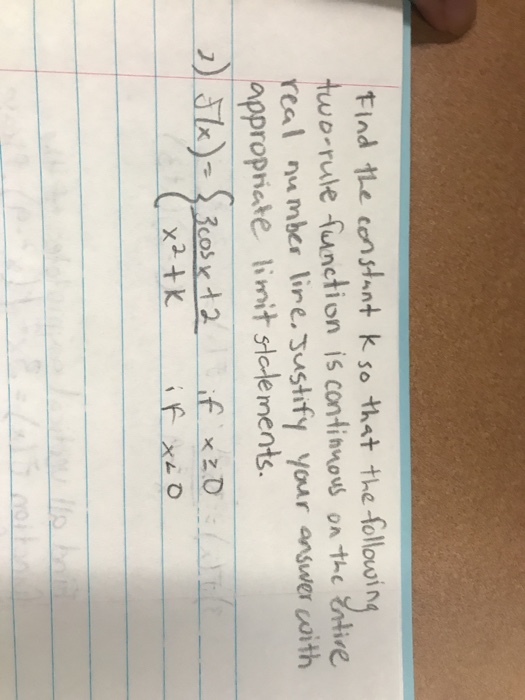 Find the constant k so that the following
two-rule function is continuous on the entire
real number line. Justify your answer with
appropriate limit statements.
2) f(x) = { 3cosx+2 if x≥0
x²+k if x<0